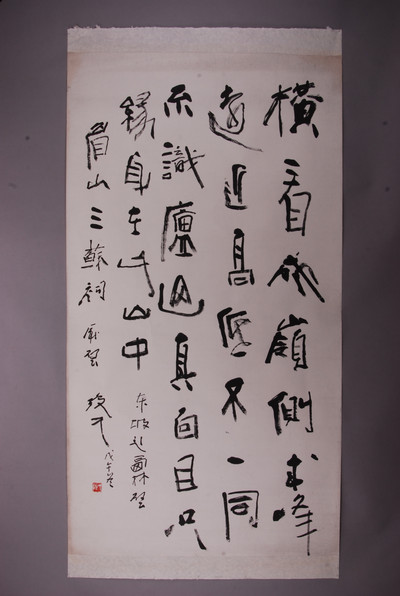 橫看成嶺側成峰
遠近高低不一同
不識廬山真面目只
緣身在此山中
东坡題西林壁
眉山三蘇祠
戊午